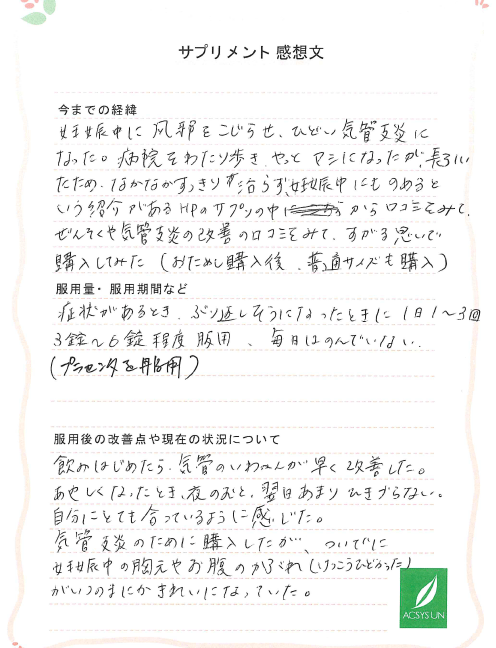 サプリメント 感想文
今までの経緯
妊娠中に風邪をこじらせ、ひどい気管支炎に
なった。病院をわたり歩き、やっとマシになったが、長引い
たため、なかなかすっきり治らず、妊娠中にものめると
いう紹介があるHPのサプリの中から口コミをみて、
ぜんそくや気管支炎の改善の口コミをみて、すがる思いで
購入してみた（おためし購入後、普通サイズも購入）
服用量・服用期間など
症状があるとき、ぶり返しそうになったときに1日1〜3回
3錠〜6錠程度服用、毎日はのんでいない。
(プラセンタを服用)
服用後の改善点や現在の状況について
飲みはじめたら、気管のいわかんが早く改善した。
あやしくなったとき、夜のむと、翌日あまりひきずらない。
自分にとても合っているように感じた。
気管支炎のために購入したが、ついでに
妊娠中の胸元やお腹のかぶれ(けっこうひどかった)
がいつのまにかきれいになっていた。
ACSYS UN